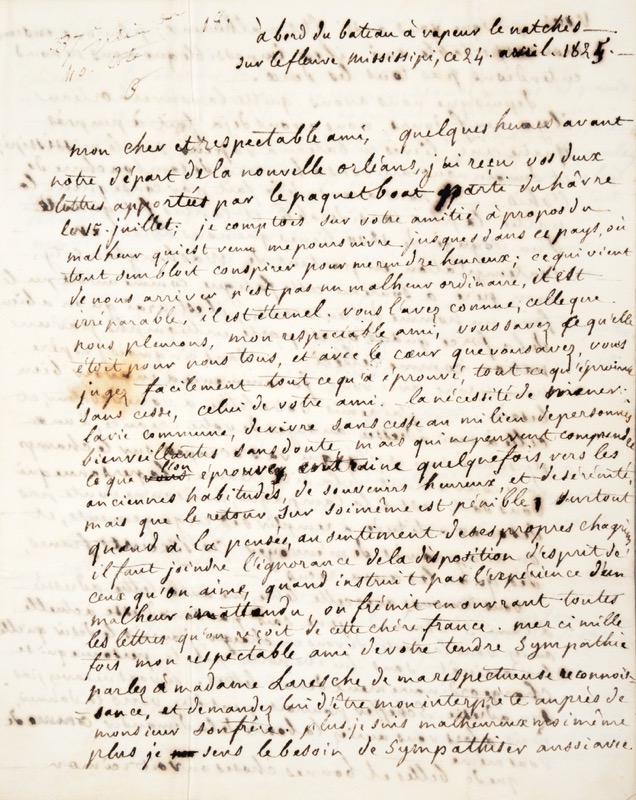 1er.
à bord du bateau à vapeur le natchés
sur le fleuve mississipi, ce 24. avril. 1825.
mon cher et respectable ami, quelques heures avant
notre départ de la nouvelle orléans, j'ai reçu vos deux
lettres apportées par le paquet boat parti du hâvre
le 15. juillet; je comptois sur votre amitié à propos du
malheur qui est venu me poursuivre jusques dans ce pays, où
tout sembloit conspirer pour me rendre heureux; ce qui vient
de nous arriver n'est pas un malheur ordinaire, il est
irréparable, il est éternel. vous l'avez connue, celle que
nous pleurons, mon respectable ami, vous savez ce qu'elle
étoit pour nous tous, et avec le cœur que vous avez, vous
jugez facilement tout ce qu'a éprouvé, tout ce qu'éprouve
sans cesse, celui de votre ami. la nécessité de mener
la vie commune, de vivre sans cesse au milieu de personnes
bienveillantes sans doute, mais qui ne peuvent comprendre
ce que l'on éprouve, entraine quelquefois vers les
anciennes habitudes, de souvenirs heureux, et de sérénité,
mais que le retour sur soi même est pénible, surtout
quand à la pensée, au sentiment de ses propres chagrins
il faut joindre l'ignorance de la disposition d'esprit de
ceux qu'on aime, quand instruit par l'expérience d'un
malheur inattendu, on frémit en ouvrant toutes
les lettres qu'on reçoit de cette chère france. merci mille
fois mon respectable ami de votre tendre sympathie
parlez à madame Laresche de ma respectueuse reconnois-
sance, et demandez lui d'être mon interprete auprès de
monsieur son frère. plus je suis malheureux moi même
plus je sens le besoin de sympathiser aussi avec